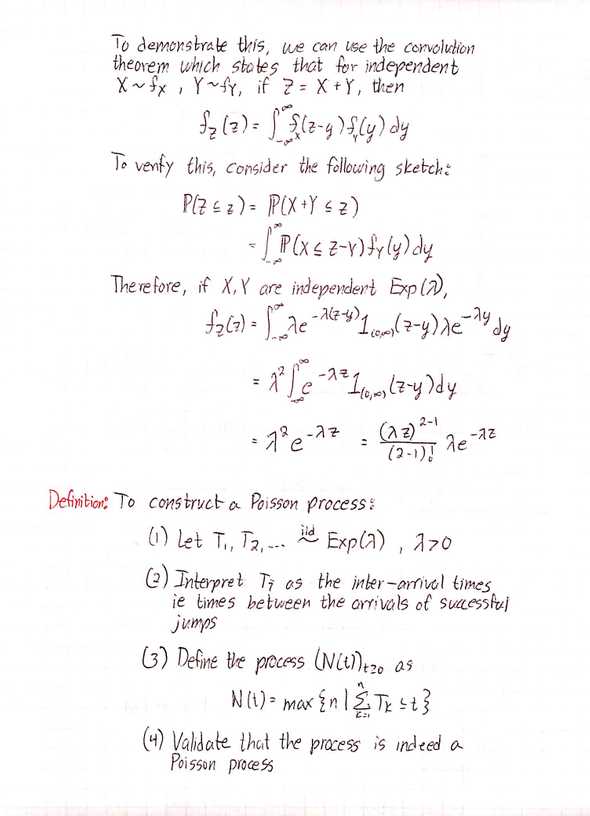 To demonstrate this, we can use the convolution
theorem which states that for independent
X ~ f_X , Y ~ f_Y, if Z = X + Y, then
f_Z(z) = ∫_{-∞}^{∞} f_X(z-y) f_Y(y) dy
To verify this, consider the following sketch:
P(Z ≤ z) = P(X + Y ≤ z)
= ∫_{-∞}^{∞} P(X ≤ z-Y) f_Y(y) dy
Therefore, if X, Y are independent Exp(λ),
f_Z(z) = ∫_{-∞}^{∞} λe^{-λ(z-y)} 1_{(0,∞)}(z-y) λe^{-λy} dy
= λ² ∫_{-∞}^{∞} e^{-λz} 1_{(0,∞)}(z-y) dy
= λ² e^{-λz} = (λz)^{2-1}/(2-1)! λe^{-λz}
Definition: To construct a Poisson process:
(1) Let T₁, T₂, ... ~^{iid} Exp(λ) , λ>0
(2) Interpret T_i as the inter-arrival times
ie times between the arrivals of successful
jumps
(3) Define the process (N(t))_{t≥0} as
N(t) = max {n | Σ_{k=1}^{n} T_k ≤ t}
(4) Validate that the process is indeed a
Poisson process